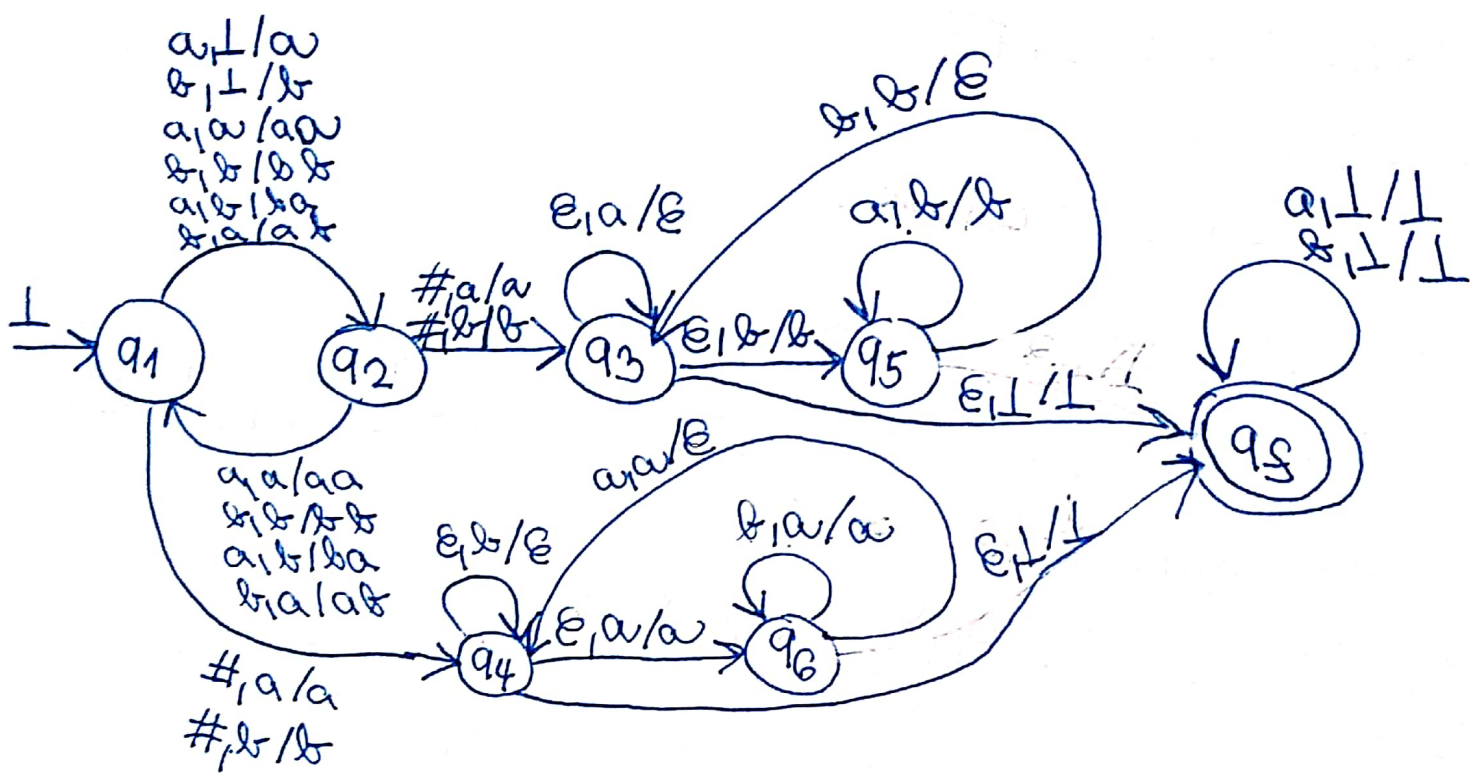 a,⊥/a
b,⊥/b
a,a/aa
b,b/bb
a,b/ba
b,a/ab
⊥
q1
q2
#,a/a
#,b/b
ε,a/ε
q3
b,b/ε
a,b/b
ε,b/b
q5
ε,⊥/⊥
a,⊥/⊥
b,⊥/⊥
qf
a,a/aa
b,b/bb
a,b/ba
b,a/ab
#,a/a
#,b/b
ε,b/ε
q4
a,a/ε
b,a/a
ε,a/a
q6
ε,⊥/⊥